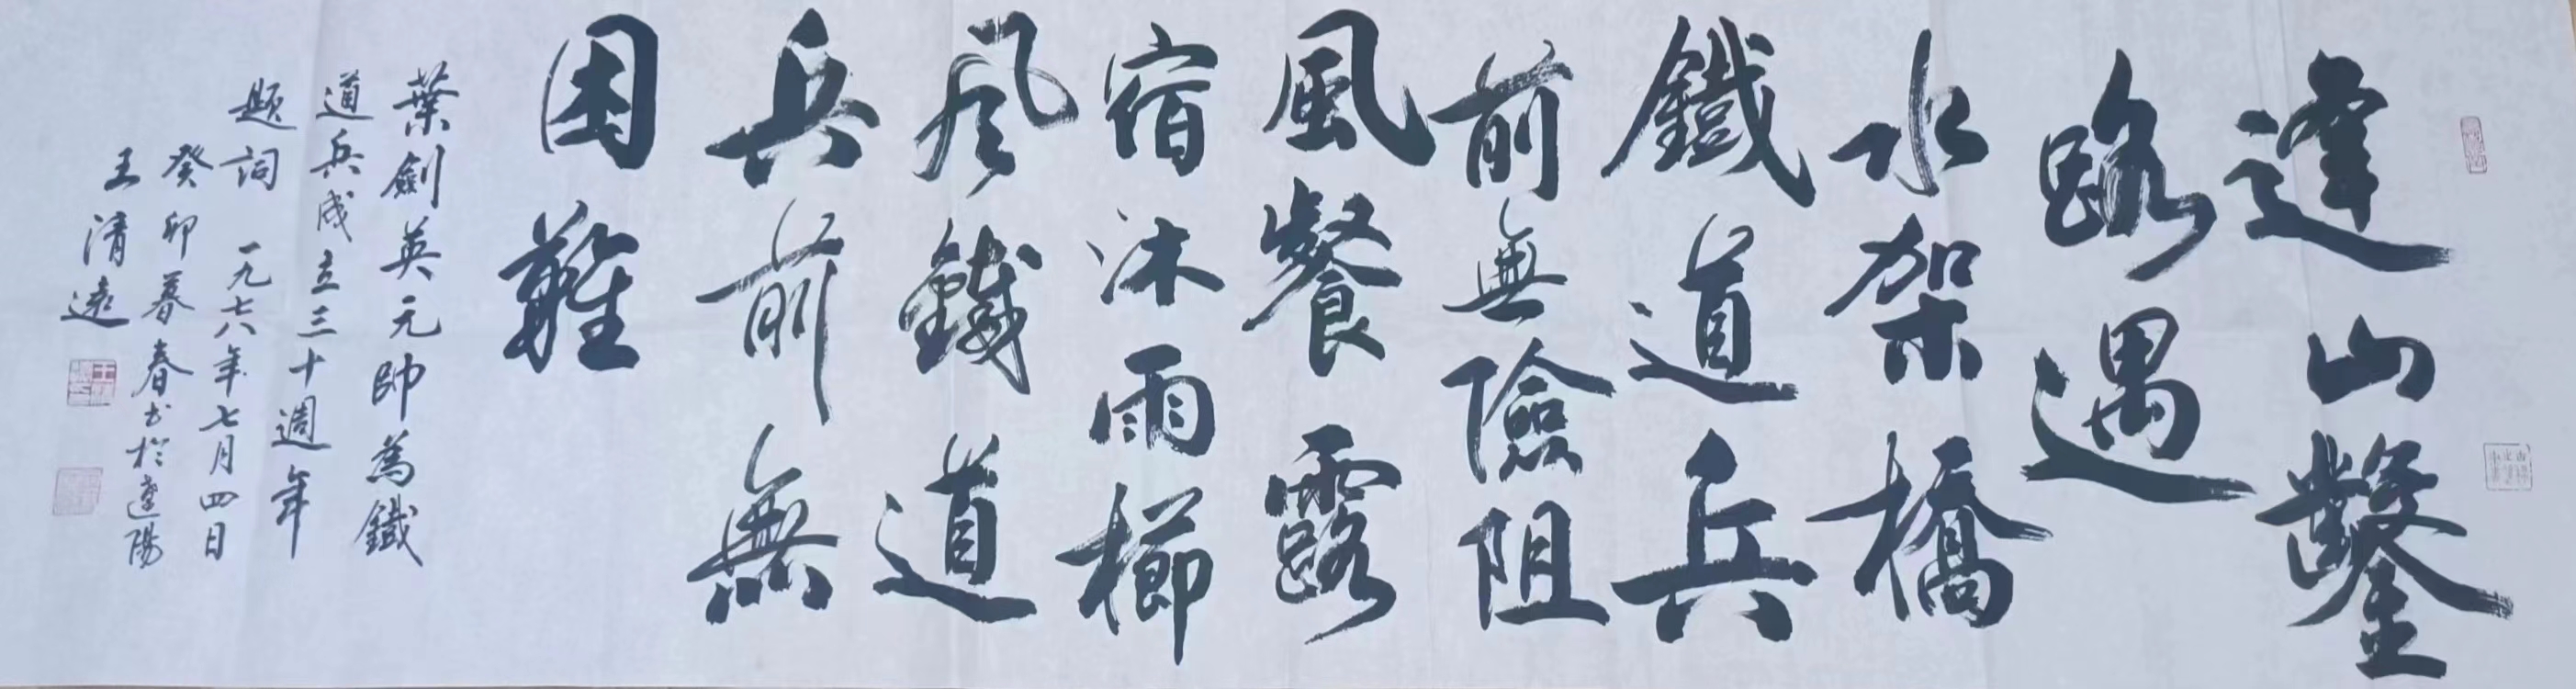 逢山鑿
路遇
水架橋
鐵道兵
前無險阻
風餐露
宿沐雨櫛
风鐵道
兵前無
困難
葉劍英元帥為鐵
道兵成立三十週年
題詞 一九七八年七月四日
癸卯暮春书於遼陽
王清遠